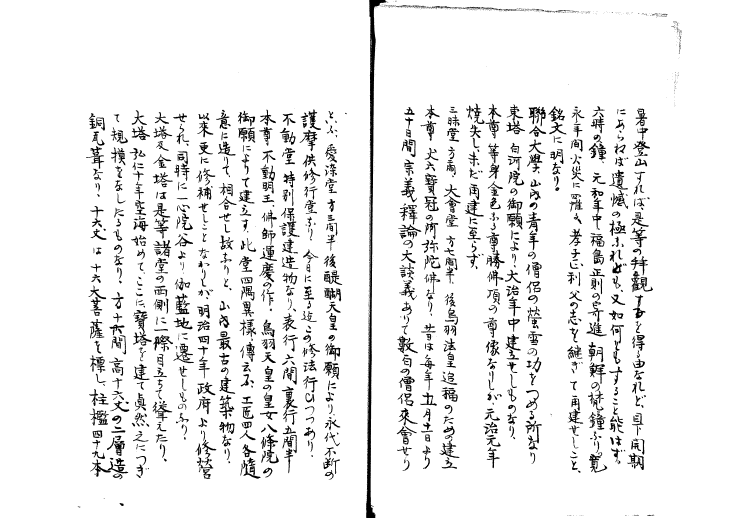 暑中登山すれば是等の拝観するを得る由なれど、目下開期
にあらねば遺憾の極みなれども、又如何ともすること能はず。
六時の鐘、元和年中福島正則の寄進朝鮮の梵鐘なり、寛
永年間火災に罹る、孝子正利父の志を継ぎて再建せしこと、
銘文に明なり。
聯合大学、山内の青年の僧侶の蛍雪の功をつめる所なり
東塔 白河院の御願により、大治年中建立せしものなり、
本尊等身金色なる尊勝佛頂の尊像なりしが、元治元年
焼失し、未だ再建に至らず、
三昧堂 方二間、大會堂 方七間半、後鳥羽法皇追福のための建立
本尊丈六寶冠の阿弥陀佛なり、昔日は毎年五月十一日より
五十日間宗義釋論の大談義ありて数百の僧侶来會せり
といふ、愛染堂 方三間半 後醍醐天皇の御願により、永代不断の
護摩供修行堂なり、今日に至る迄この修法行ひつつあり、
不動堂 特別保護建造物なり、表行六間 裏行五間半
本尊、不動明王、佛師運慶の作、鳥羽天皇の皇女八條院の
御願によりて建立す、此堂四隅異様傳云ふ、工匠四人各随
意に造りて、相合せし故なりと、山内最古の建築物なり、
以来更に修補せしことなかりしが、明治四十年政府より修営
せられ、同時に一心院谷より伽藍地に遷せしものなり、
大塔及金堂は是等諸堂の西側に一際目立ちて聳えたり、
大塔、弘仁十年空海始めて、ここに寶塔を建て真然之につぎ
て規模をなしたるものなり、方十六間 高十六丈の二層造の
銅瓦葺なり、十六丈は十六大菩薩を標し、柱檻四十九本